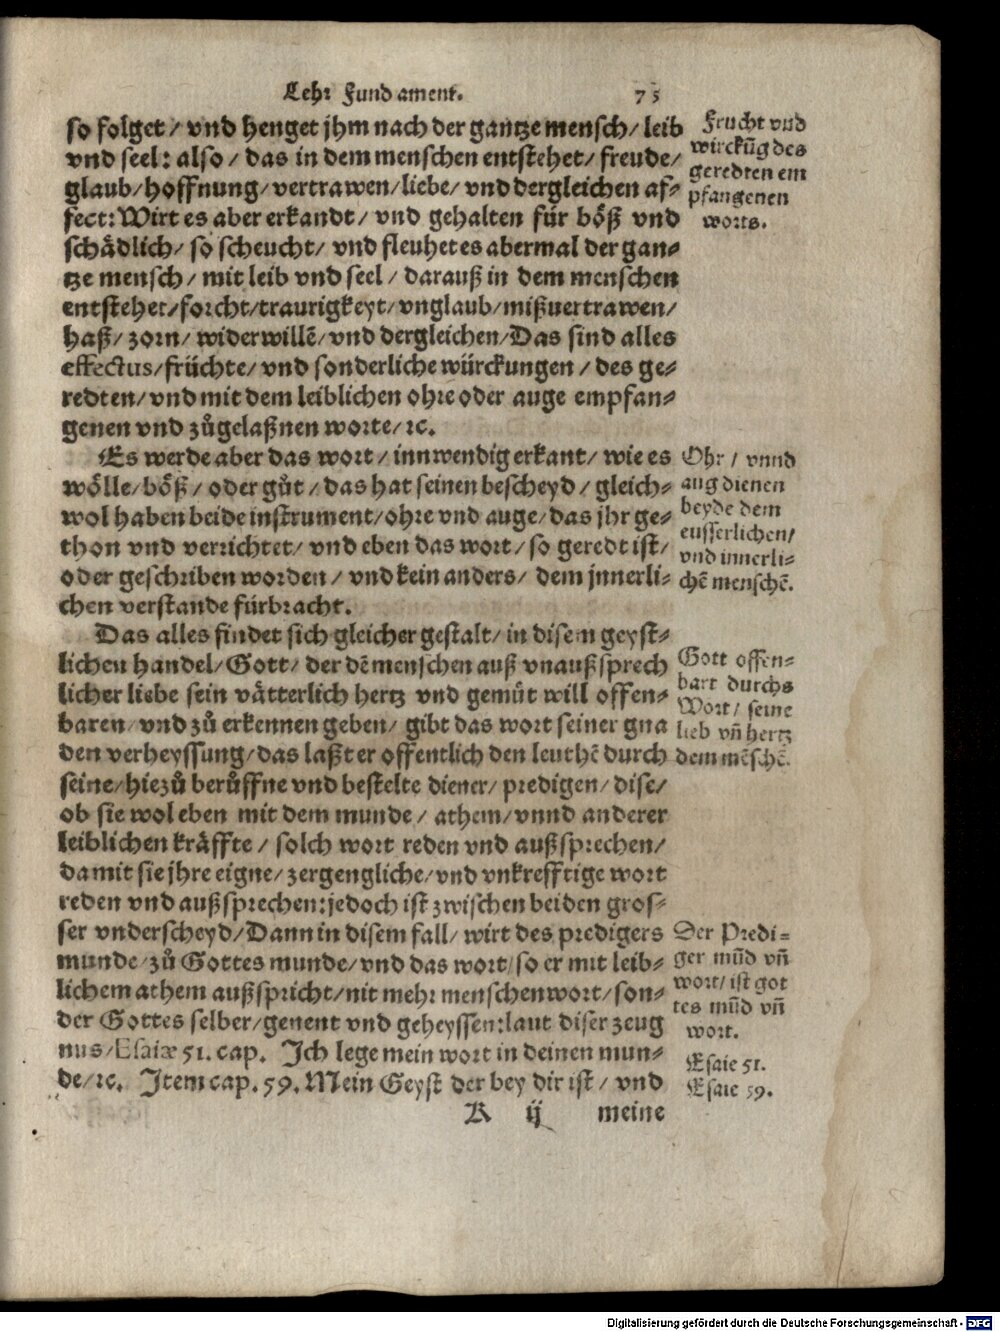 Lehr Fundament. 75
so folget / vnd henget jhm nach der gantze mensch / leib
vnd seel: also / das in dem menschen entstehet / freude /
glaub / hoffnung / vertrawen / liebe / vnd dergleichen af-
fect: Wirt es aber erkandt / vnd gehalten für böß vnd
schädlich / so scheucht / vnd fleuhet es abermal der gan-
tze mensch / mit leib vnd seel / darauß in dem menschen
entstehet / forcht / traurigkeyt / vnglaub / mißuertrawen /
haß / zorn / widerwillẽ / vnd dergleichen / Das sind alles
effectus / früchte / vnd sonderliche würckungen / des ge-
redten / vnd mit dem leiblichen ohre oder auge empfan-
genen vnd zůgelaßnen worte / ꝛc.
Frucht vnd
wirckũg des
geredten em
pfangenen
worts.
Es werde aber das wort / innwendig erkant / wie es
wölle / böß / oder gůt / das hat seinen bescheyd / gleich-
wol haben beide instrument / ohre vnd auge / das jhr ge-
thon vnd verrichtet / vnd eben das wort / so geredt ist /
oder geschriben worden / vnd kein anders / dem jnnerli-
chen verstande fürbracht.
Ohr / vnnd
aug dienen
beyde dem
eusserlichen /
vnd innerli-
chẽ menschẽ.
Das alles findet sich gleicher gestalt / in disem geyst-
lichen handel / Gott / der dẽ menschen auß vnaußsprech
licher liebe sein vätterlich hertz vnd gemüt will offen-
baren / vnd zů erkennen geben / gibt das wort seiner gna
den verheyssung / das laßt er offentlich den leuthẽ durch
seine / hiezů berůffne vnd bestelte diener / predigen / dise /
ob sie wol eben mit dem munde / athem / vnnd anderer
leiblichen kräffte / solch wort reden vnd außsprechen /
damit sie jhre eigne / zergengliche / vnd vnkrefftige wort
reden vnd außsprechen: jedoch ist zwischen beiden gros-
ser vnderscheyd / Dann in disem fall / wirt des predigers
munde / zů Gottes munde / vnd das wort / so er mit leib-
lichem athem außspricht / nit mehr menschen wort / son-
der Gottes selber / genent vnd geheyssen: laut diser zeug
nus / Esaiæ 51. cap. Ich lege mein wort in deinen mun-
de / ꝛc. Item cap. 59. Mein Geyst der bey dir ist / vnd
Gott offen-
bart durchs
Wort / seine
lieb vñ hertz
dem mẽschẽ.
Der Predi-
ger mũd vñ
wort / ist got
tes mũd vñ
wort.
Esaie 51.
Esaie 59.
K ij meine
Digitalisierung gefördert durch die Deutsche Forschungsgemeinschaft - DFG